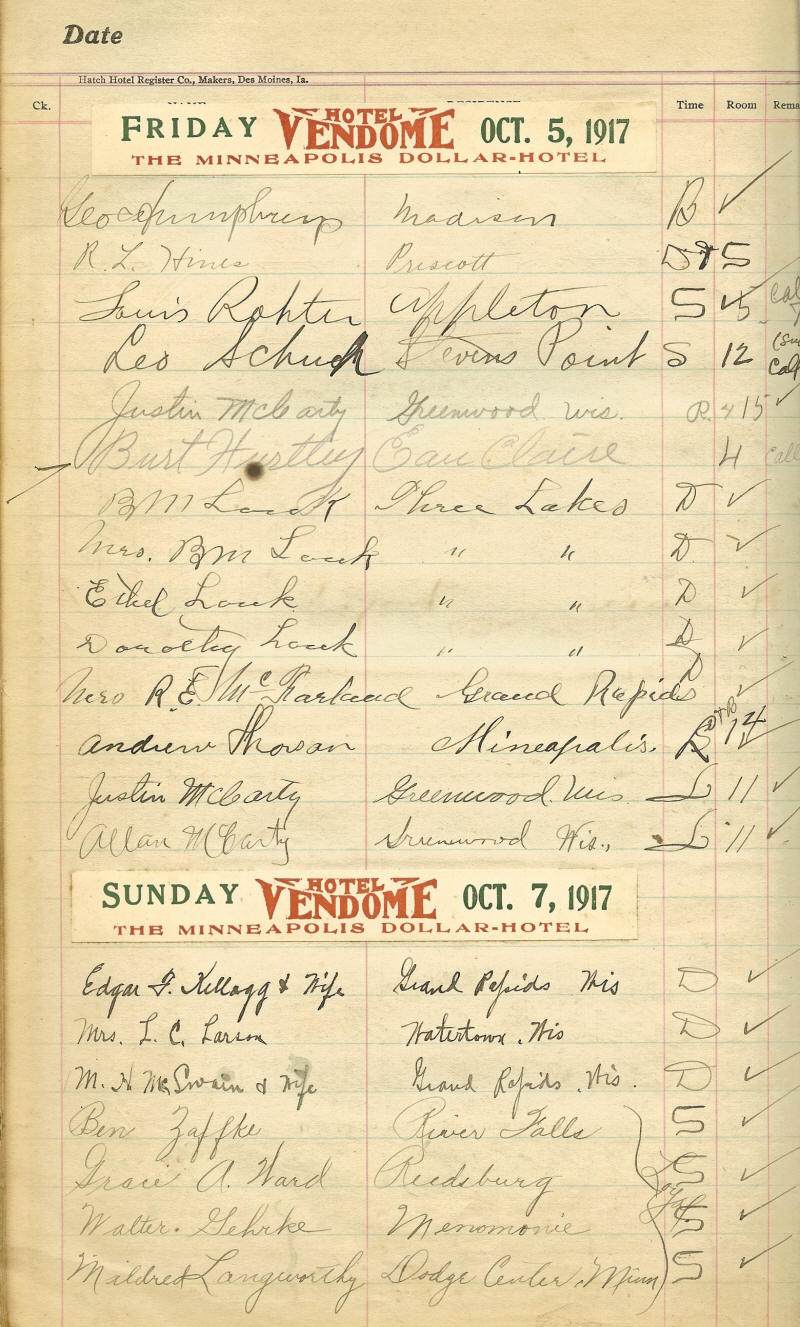 Date
Hatch Hotel Register Co., Makers, Des Moines, Ia.
Ck. Time Room Rema
FRIDAY HOTEL VENDOME OCT. 5, 1917
THE MINNEAPOLIS DOLLAR-HOTEL
Geo Humphreys Madison B ✓
R. L. Hines Priscott D 5
Louis Rohter Appleton S
Leo Schuck Stevens Point S 12
Justin McCarty Greenwood Wis. R. 15 ✓
Burt Hurtley Eau Claire 4 Call
BM Louk Three Lakes D ✓
Mrs. BM Louk " " D ✓
Ethel Louk " " D ✓
Dorothy Louk " " D ✓
Mrs R.E. McFarland Grand Rapids D ✓
Andrew Mineapalis. S 14
Justin McCarty Greenwood. Wis L 11 ✓
Allan McCarty Greenwood Wis., L 11 ✓
SUNDAY HOTEL VENDOME OCT. 7, 1917
THE MINNEAPOLIS DOLLAR-HOTEL
Edgar F. Kellogg & Wife Grand Rapids Wis D ✓
Mrs. L. C. Larson Watertown, Wis D ✓
M. H McSwain & Wife Grand Rapids, Wis. D ✓
Ben Zaffke River Falls S ✓
Gracie A. Ward Reedsburg S ✓
Walter. Gehrke Menomonie S ✓
Mildred Langworthy Dodge Center, Minn S ✓